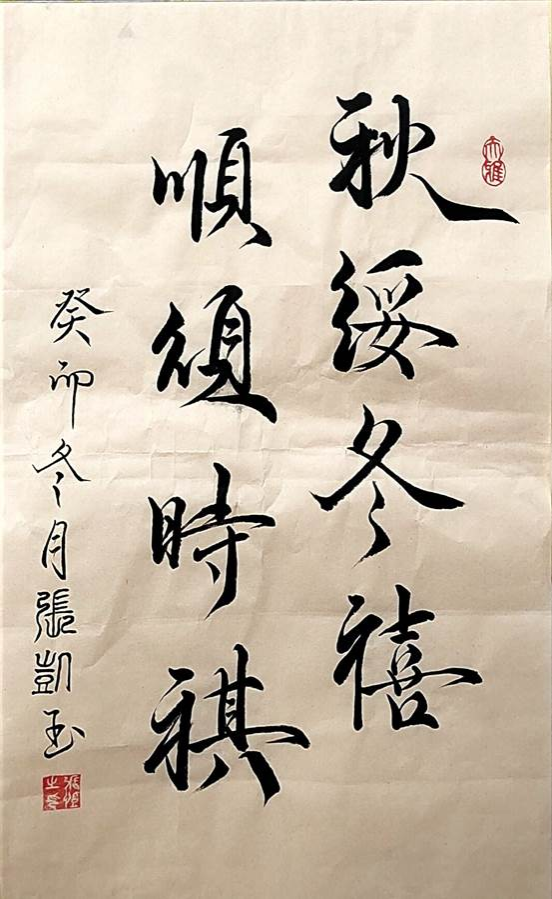 秋綏冬禧
順頌時祺
癸卯冬月張凱玉
大雅